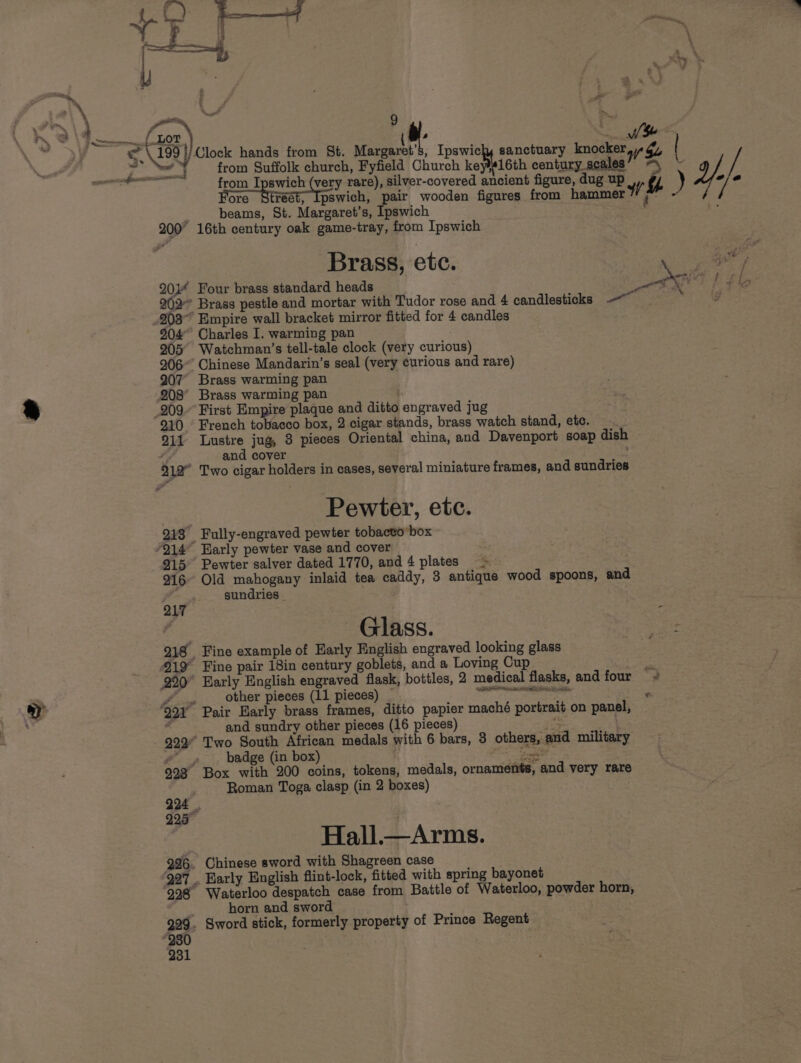 9
LOT
199 Clock hands from St. Margaret's, Ipswich, sanctuary knocker
from Suffolk church, Fyfield Church key, 16th century scales
from Ipswich (very rare), silver-covered ancient figure, dug up
Fore Street, Ipswich, pair wooden figures from hammer
beams, St. Margaret's, Ipswich
200 16th century oak game-tray, from Ipswich
Brass, etc.
201 Four brass standard heads
202 Brass pestle and mortar with Tudor rose and 4 candlesticks
203 Empire wall bracket mirror fitted for 4 candles
204 Charles I. warming pan
205 Watchman's tell-tale clock (very curious)
206 Chinese Mandarin's seal (very curious and rare)
207 Brass warming pan
208 Brass warming pan
209 First Empire plaque and ditto engraved jug
210 French tobacco box, 2 cigar stands, brass watch stand, etc.
211 Lustre jug, 3 pieces Oriental china, and Davenport soap dish
and cover
212 Two cigar holders in cases, several miniature frames, and sundries
Pewter, etc.
213 Fully-engraved pewter tobacco box
214 Early pewter vase and cover
215 Pewter salver dated 1770, and 4 plates
216 Old mahogany inlaid tea caddy, 3 antique wood spoons, and
sundries
217
Glass.
218 Fine example of Early English engraved looking glass
219 Fine pair 18in century goblets, and a Loving Cup
220 Early English engraved flask, bottles, 2 medical flasks, and four
other pieces (11 pieces)
221 Pair Early brass frames, ditto papier maché portrait on panel,
and sundry other pieces (16 pieces)
222 Two South African medals with 6 bars, 3 others, and military
badge (in box)
223 Box with 200 coins, tokens, medals, ornaments, and very rare
Roman Toga clasp (in 2 boxes)
224
225
Hall.—Arms.
226 Chinese sword with Shagreen case
227 Early English flint-lock, fitted with spring bayonet
228 Waterloo despatch case from Battle of Waterloo, powder horn,
horn and sword
229 Sword stick, formerly property of Prince Regent
230
231